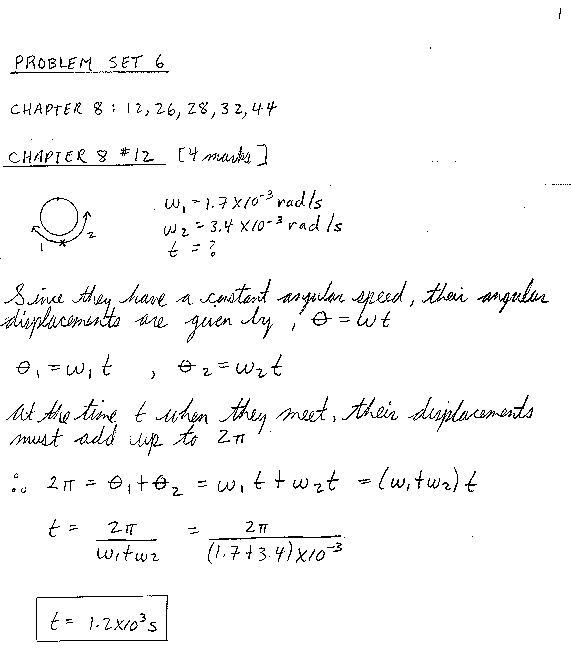 1
PROBLEM SET 6
CHAPTER 8 : 12, 26, 28, 32, 44
CHAPTER 8 #12 [4 marks]
ω₁ = 1.7 X10⁻³ rad/s
ω₂ = 3.4 X10⁻³ rad/s
t = ?
1 2
Since they have a constant angular speed, their angular
displacements are given by, θ = ωt
θ₁ = ω₁ t , θ₂ = ω₂ t
At the time t when they meet, their displacements
must add up to 2π
∴ 2π = θ₁ + θ₂ = ω₁ t + ω₂ t = (ω₁+ω₂) t
t = 2π / ω₁+ω₂ = 2π / (1.7+3.4)X10⁻³
t = 1.2X10³ s